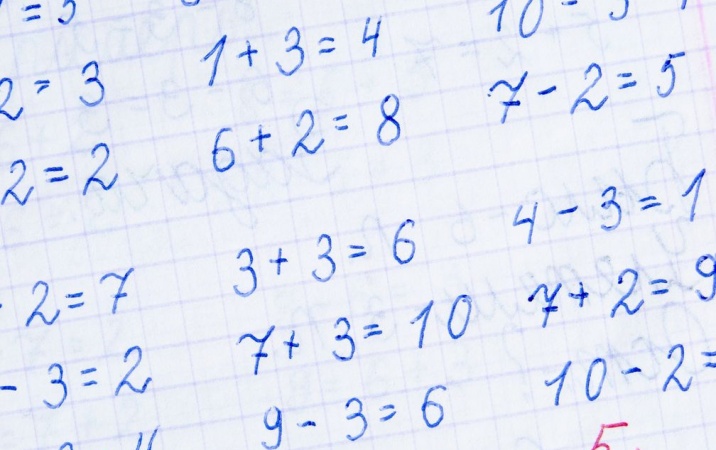 = 5
2 = 3
2 = 2
2 = 7
- 3 = 2
1 + 3 = 4
6 + 2 = 8
3 + 3 = 6
7 + 3 = 10
9 - 3 = 6
10 -
7 - 2 = 5
4 - 3 = 1
7 + 2 = 9
10 - 2 =
5